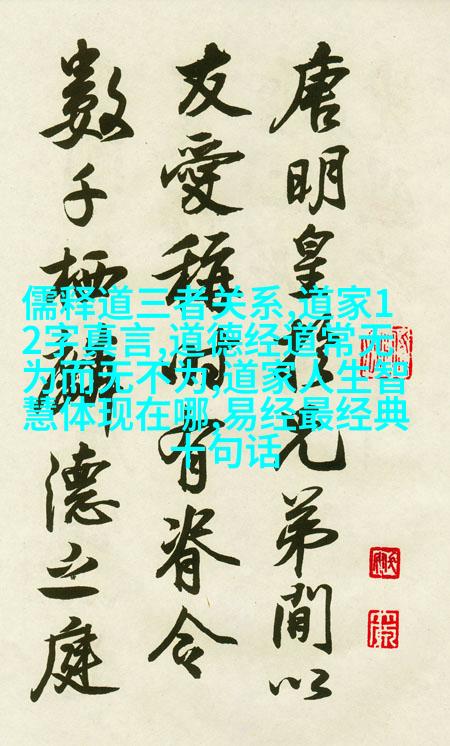 唐明皇兄弟間以
友愛稱有脊令
數千栖麟德之庭
儒释道三者关系,道家1
2字真言,道德经道常无
为而无不为,道家人生智
慧体现在哪.易经最经典
十句话